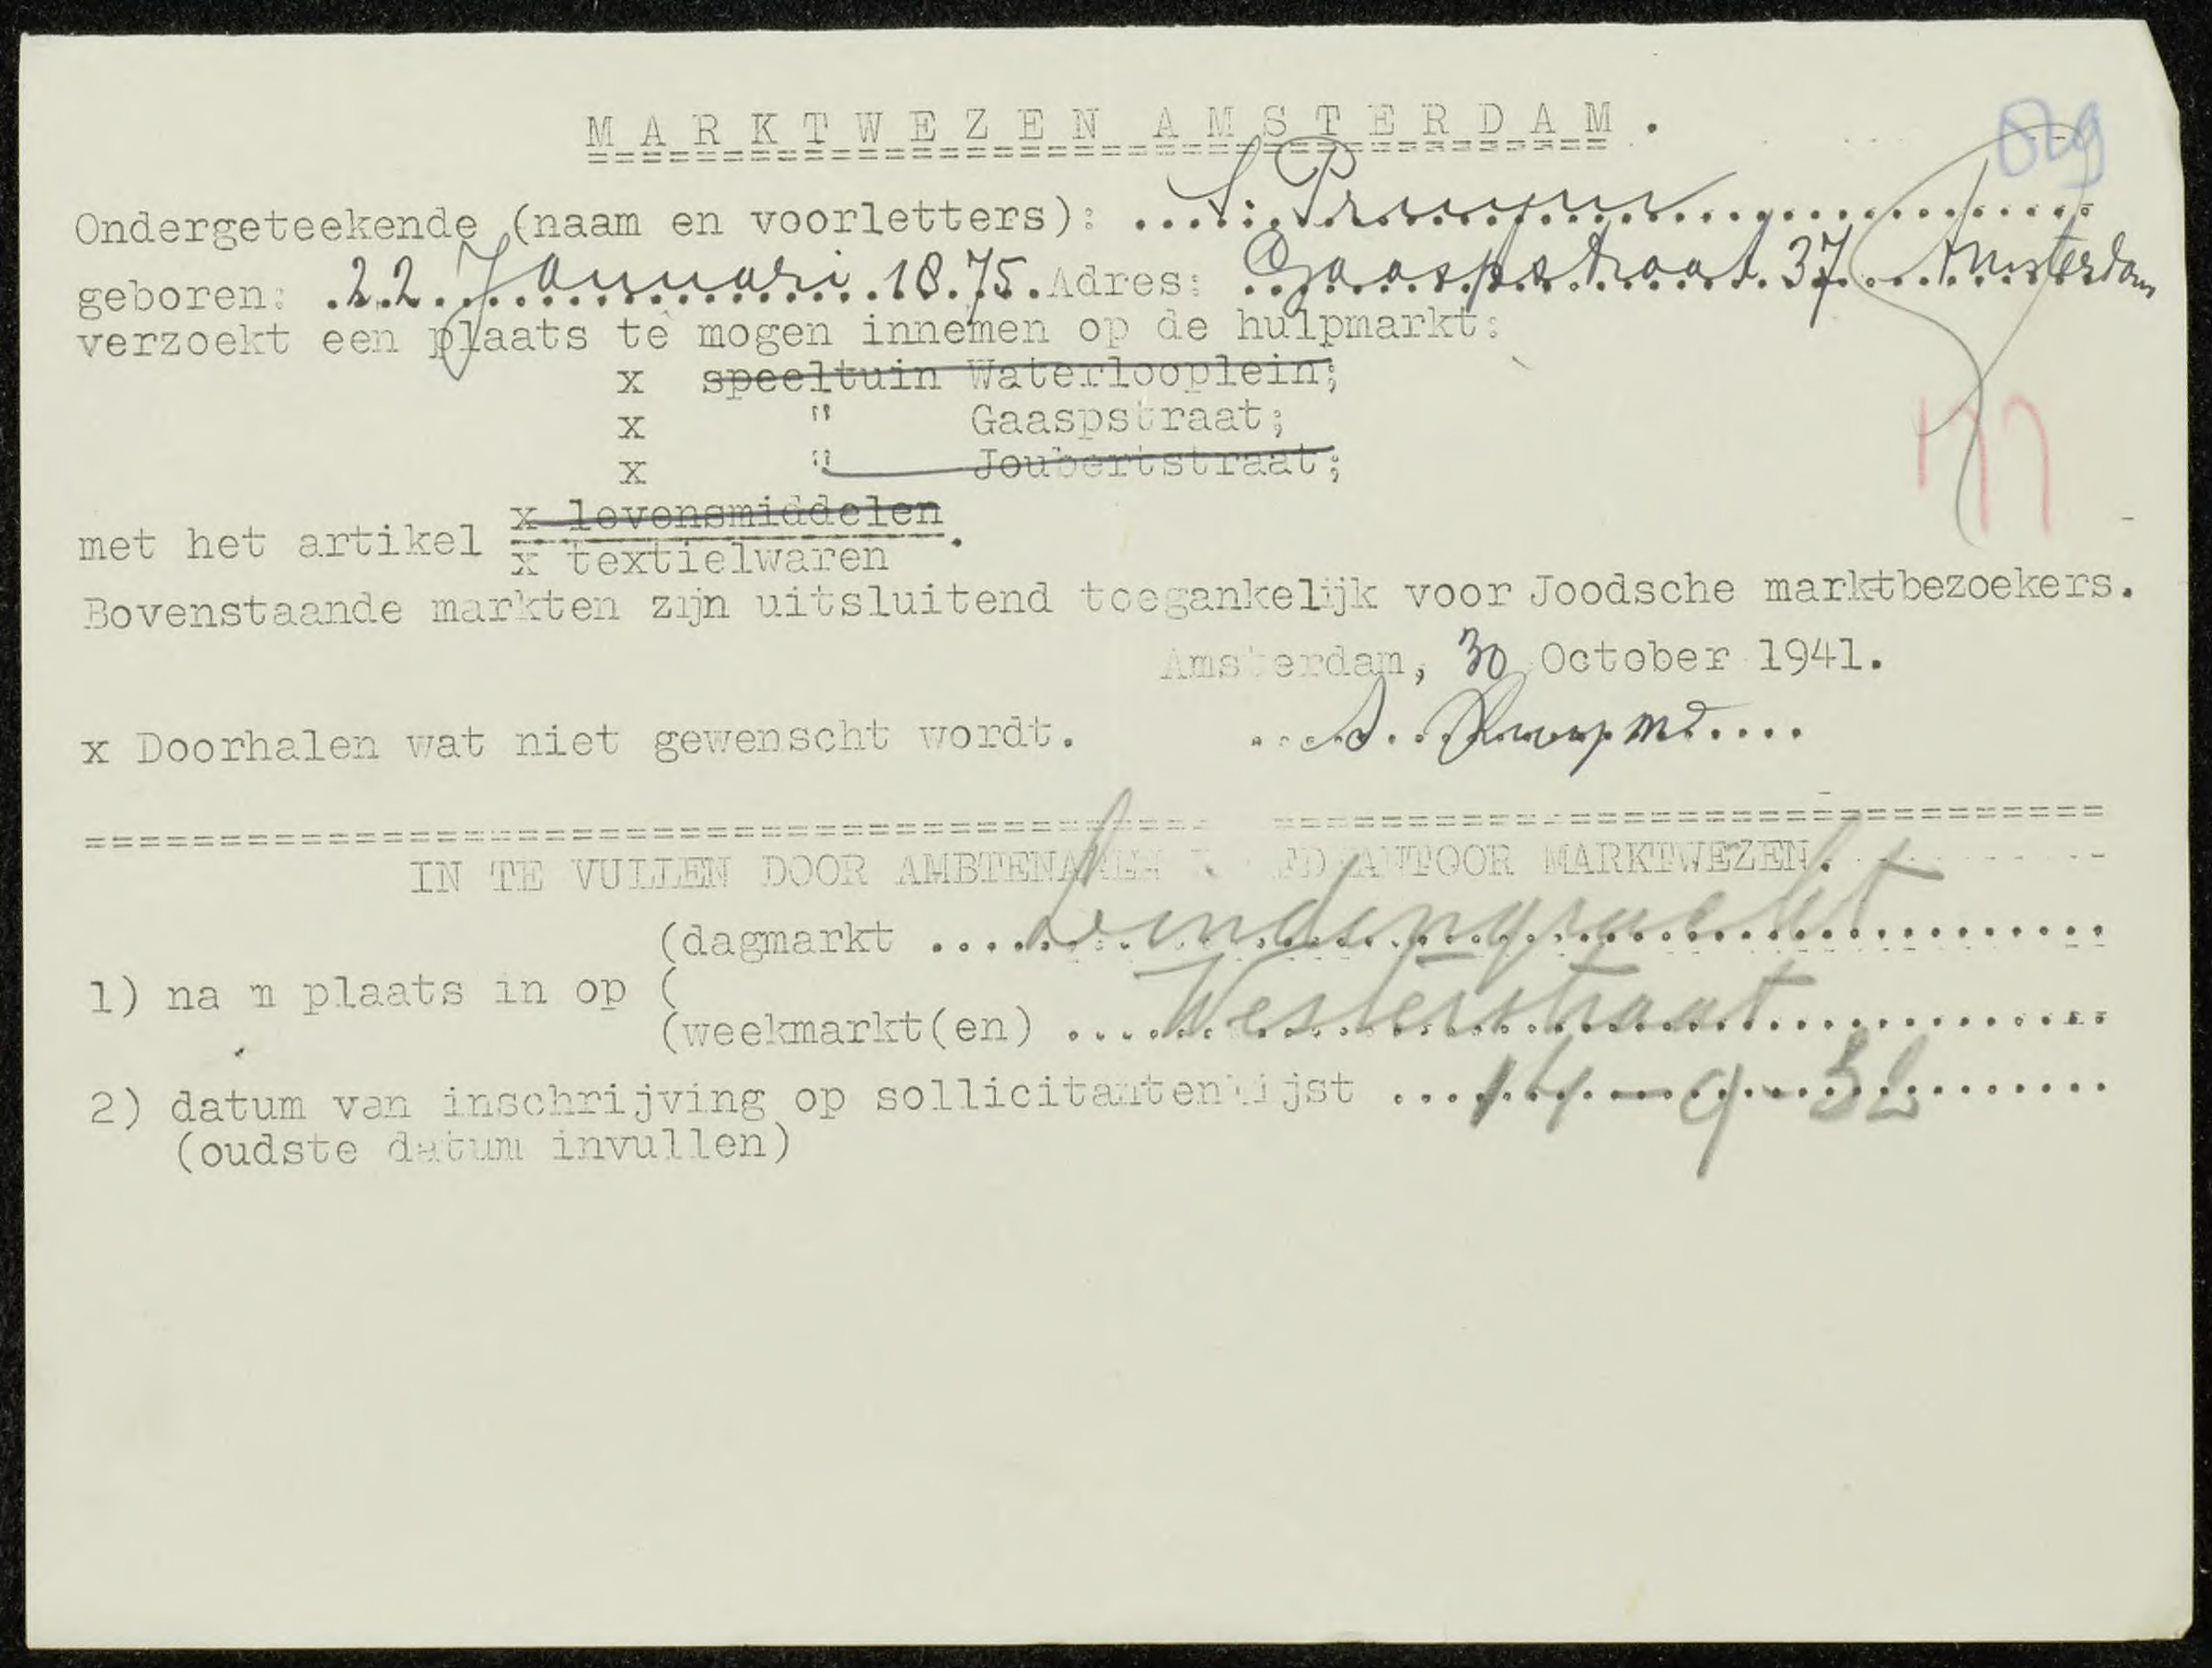 MARKTWEZEN AMSTERDAM.
Ondergeteekende (naam en voorletters): S. Pruym
geboren: 22 Januari 1875. Adres: Gaaspstraat 37 Amsterdam
verzoekt een plaats te mogen innemen op de hulpmarkt:
x speeltuin Waterlooplein;
x " Gaaspstraat;
x " Joubertstraat;
x levensmiddelen
met het artikel
x textielwaren.
Bovenstaande markten zijn uitsluitend toegankelijk voor Joodsche marktbezoekers.
Amsterdam, 30 October 1941.
x Doorhalen wat niet gewenscht wordt. S.
IN TE VULLEN DOOR AMBTENAREN HOOFDKANTOOR MARKTWEZEN.
(dagmarkt Lindengracht
1) nam plaats in op (
(weekmarkt(en) Westerstraat
2) datum van inschrijving op sollicitantenlijst 14-9-32
(oudste datum invullen)